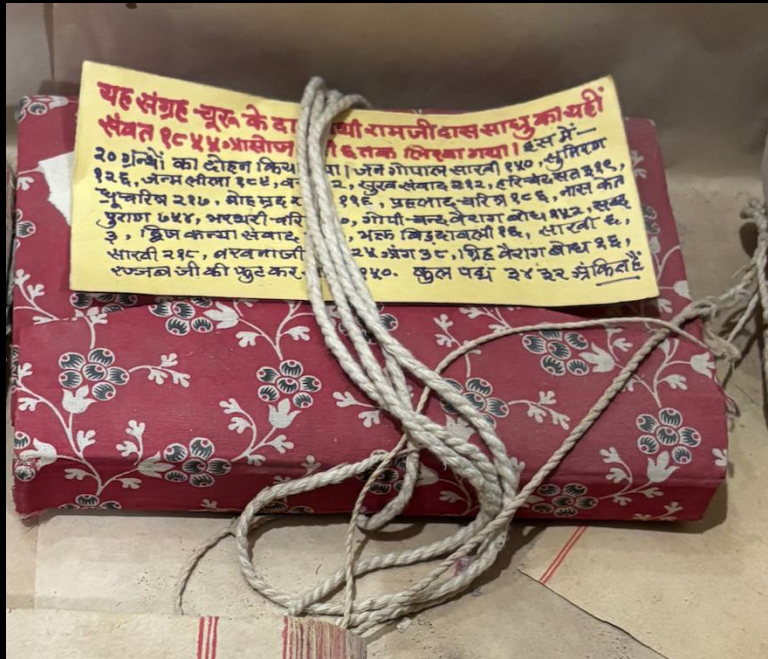 यह संग्रह चूरू के दा थी रामजीदास साधु का यहीं
संवत १८४४ आसोज ६ तक लिखा गया। इस में—
२० ग्रंथों का दोहन किय या। जन गोपाल साखी १४०, सुमिरण
१२६, जन्म लीला १८४, २, सुख संवाद २१२, हरिचंद सत ३१९,
ध्रूचरित्र २१७, मोह मृद ११६, प्रहलाद चरित्र १८६, नास केत
पुराण ७४४, भरथरी चरि ०, गोपी चन्द वैराग बोध १४२, सबद
३, द्विज कन्या संवाद, भक्त बिड़दावली १६, साखी ६,
साखी २१८, वखनाजी २४ अंग ३८, ग्रिह वैराग बोध २६,
रज्जब जी की फुटकर १४०. कुल पद्य ३४३२ अंकित हैं